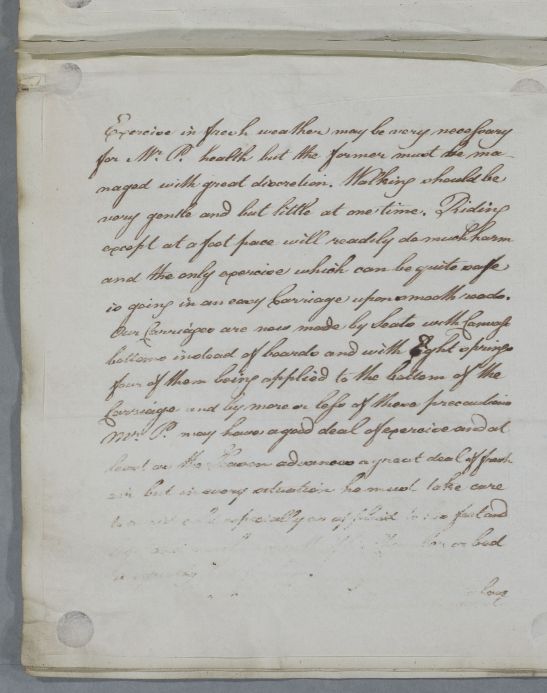 Exercise in fresh weather may be very necessary
for Mr. P. health but the former must be ma-
naged with great discretion. Walking should be
very gentle and but little at one time. Riding
except at a foot pace will readily do much harm
and the only exercise which can be quite safe
is going in an easy Carriage upon smooth roads.
Our Carriages are now made by Seats with Canvass
bottoms instead of boards and with Eight springs
four of them being applied to the bottom of the
Carriage and by more or less of these precautions
Mr. P. may have a good deal of exercise and at
least as the Season advances a great deal of fresh
air but in every situation he must take care
to avoid cold especially as applied to the feet and
or bed